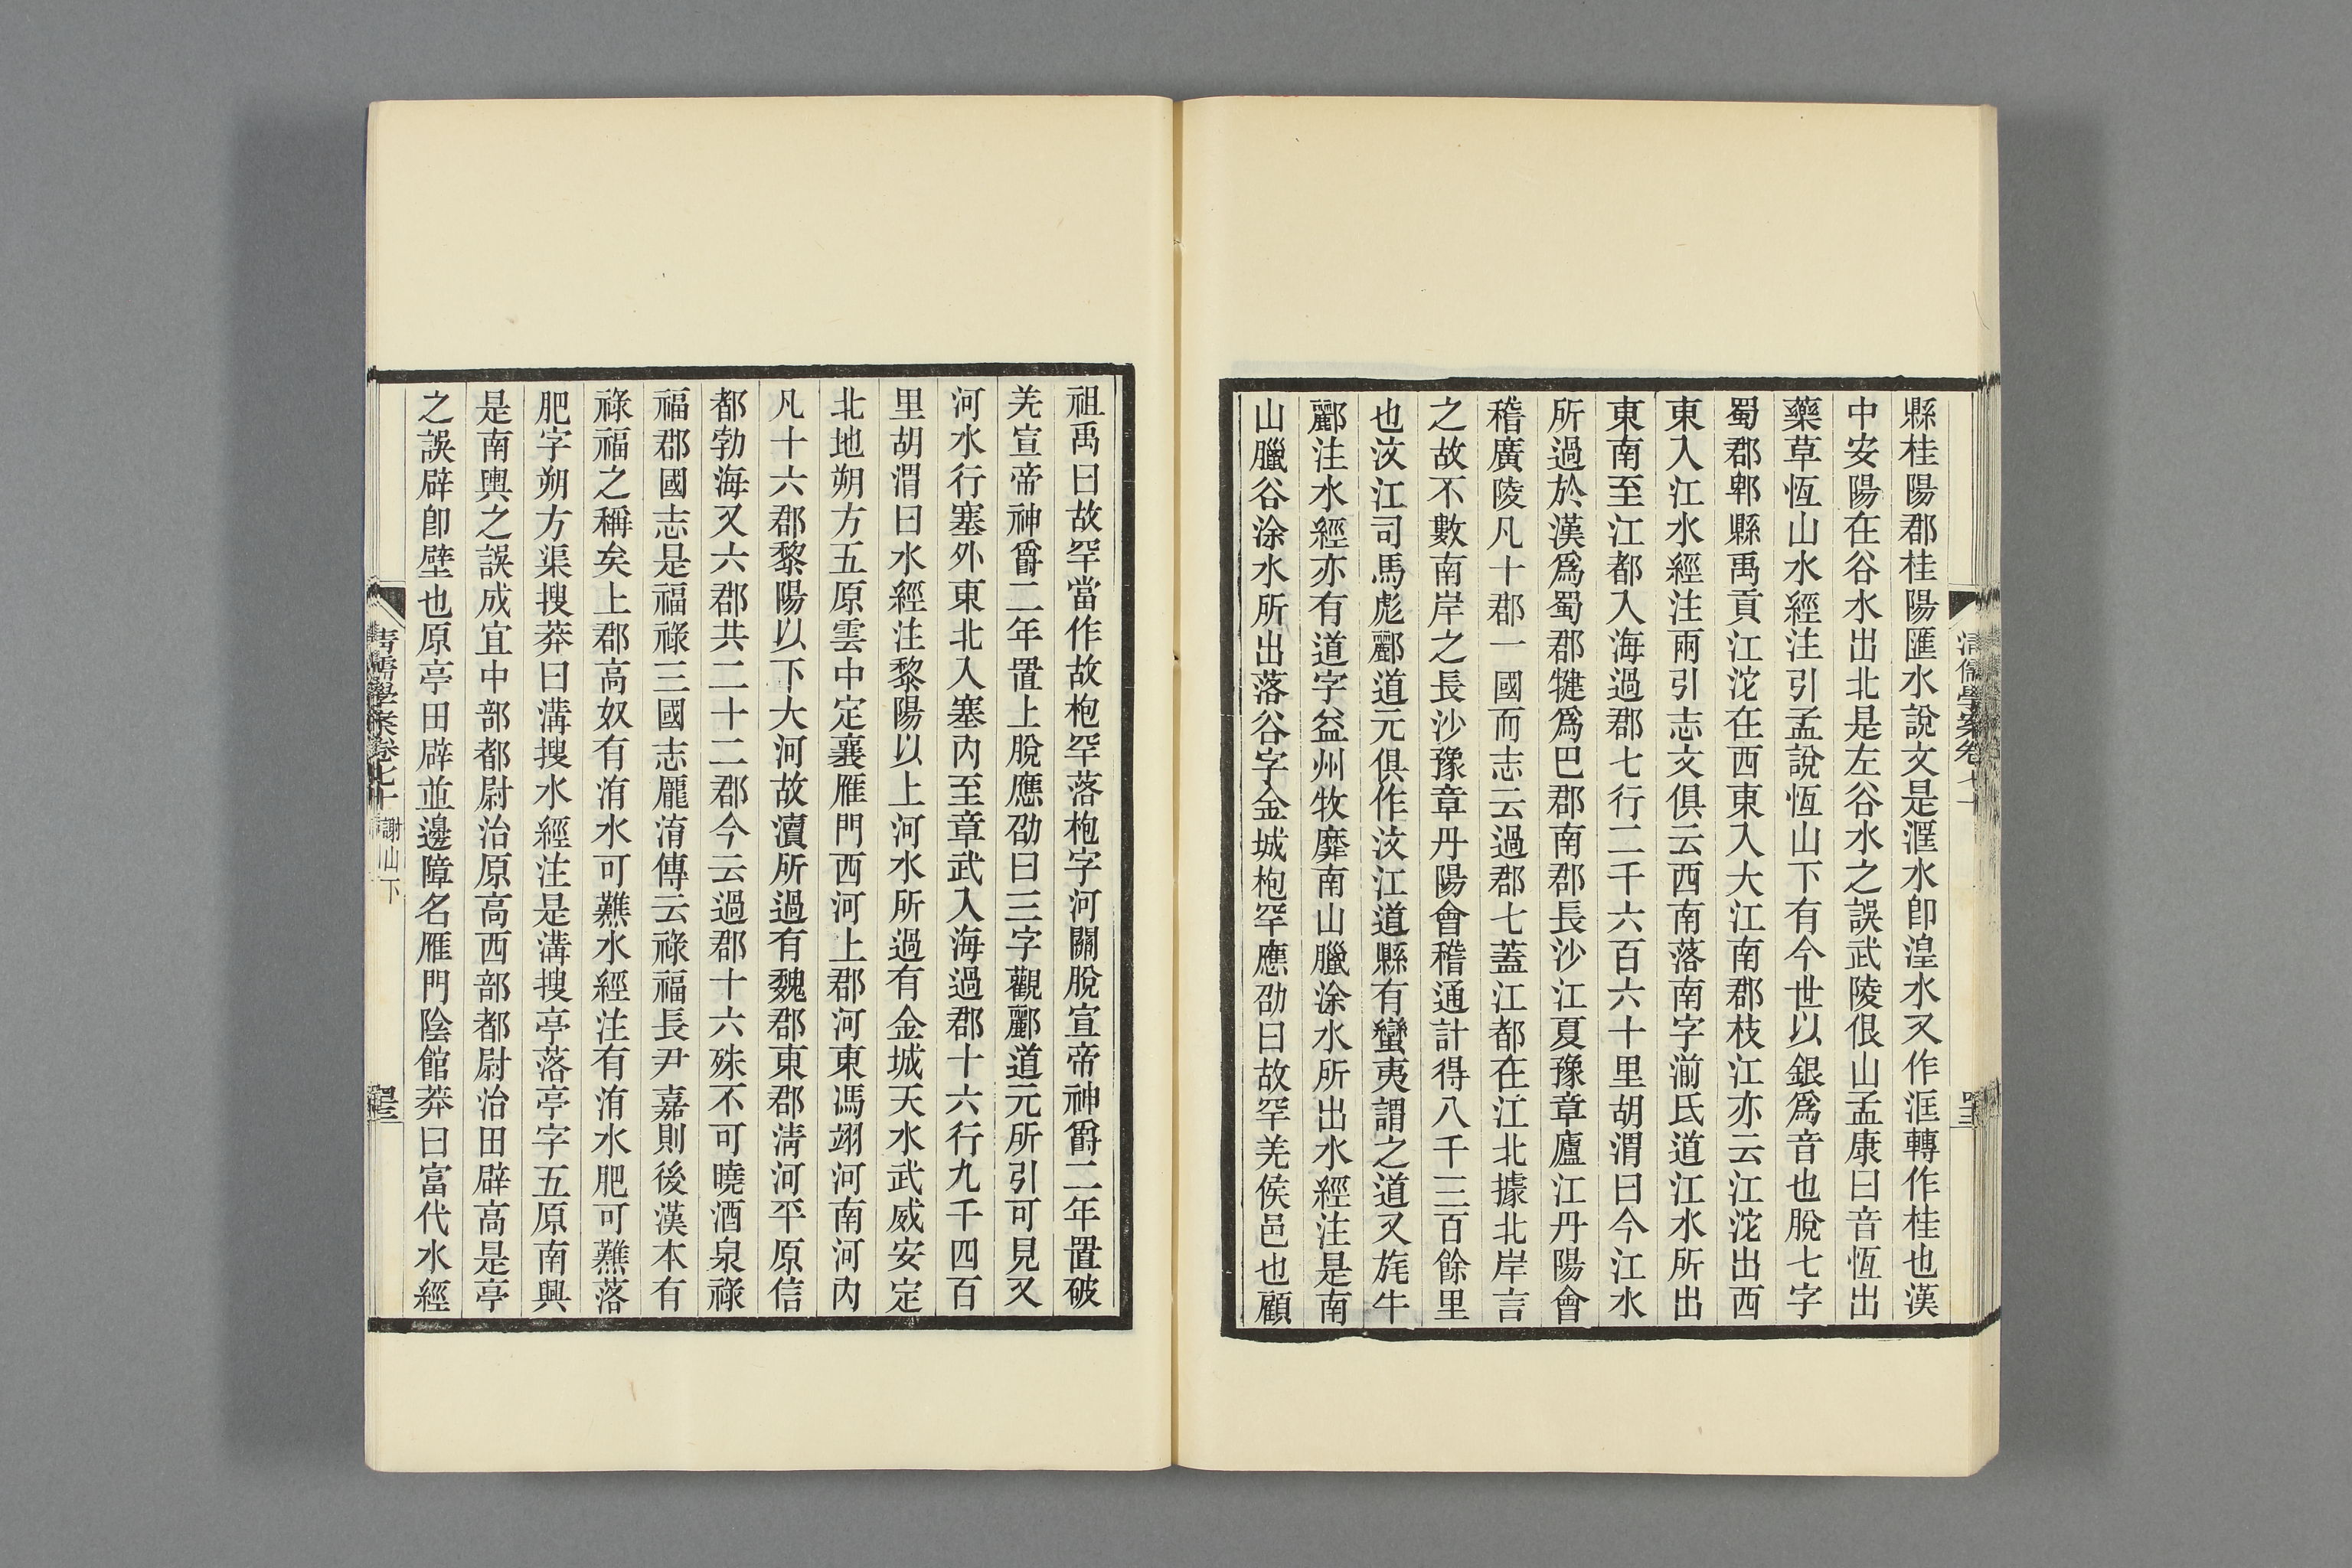 縣桂陽郡桂陽匯水說文是滙水卽湟水又作洭轉作桂也漢
中安陽在谷水出北是左谷水之誤武陵佷山孟康曰音恆出
藥草恆山水經注引孟說恆山下有今世以銀爲音也脫七字
蜀郡郫縣禹貢江沱在西東入大江南郡枝江亦云江沱出西
東入江水經注兩引志文俱云西南落南字湔氐道江水所出
東南至江都入海過郡七行二千六百六十里胡渭曰今江水
所過於漢爲蜀郡犍爲巴郡南郡長沙江夏豫章廬江丹陽會
稽廣陵凡十郡一國而志云過郡七蓋江都在江北據北岸言
之故不數南岸之長沙豫章丹陽會稽通計得八千三百餘里
也汶江司馬彪酈道元俱作汶江道縣有蠻夷謂之道又旄牛
酈注水經亦有道字益州牧靡南山臘涂水所出水經注是南
山臘谷涂水所出落谷字金城枹罕應劭曰故罕羌侯邑也顧
清儒學案卷七十
祖禹曰故罕當作故枹罕落枹字河關脫宣帝神爵二年置破
羌宣帝神爵二年置上脫應劭曰三字觀酈道元所引可見又
河水行塞外東北入塞內至章武入海過郡十六行九千四百
里胡渭曰水經注黎陽以上河水所過有金城天水武威安定
北地朔方五原雲中定襄雁門西河上郡河東馮翊河南河內
凡十六郡黎陽以下大河故瀆所過有魏郡東郡清河平原信
都勃海又六郡共二十二郡今云過郡十六殊不可曉酒泉祿
福郡國志是福祿三國志龐淯傳云祿福長尹嘉則後漢本有
祿福之稱矣上郡高奴有洧水可㸐水經注有洧水肥可㸐落
肥字朔方渠搜莽曰溝搜水經注是溝搜亭落亭字五原南興
是南輿之誤成宜中部都尉治原高西部都尉治田辟高是亭
之誤辟卽壁也原亭田辟並邊障名雁門陰館莽曰富代水經
清儒學案卷七十 謝山下